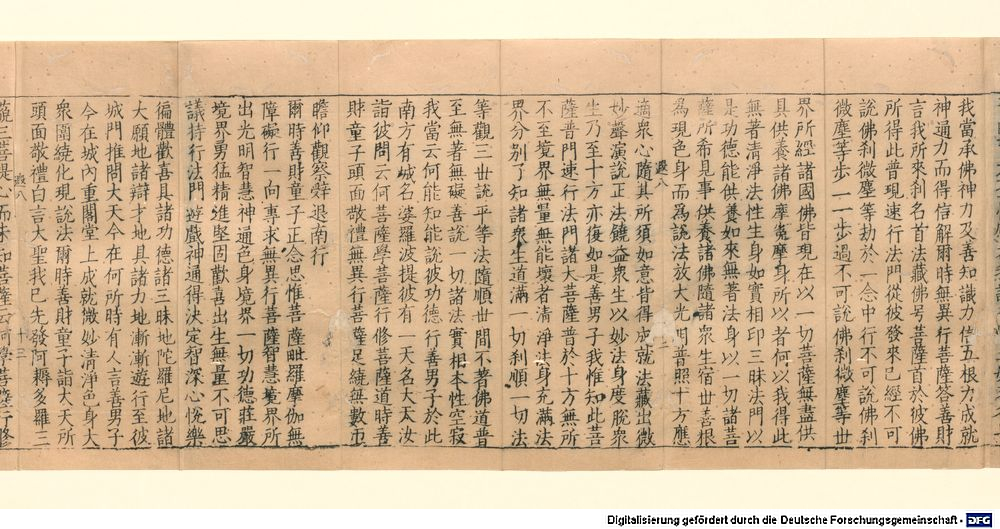 我當承佛神力及善知識力信五根力成就
神通力而得信解爾時無異行菩薩答善財
言我所來刹名首法藏佛号 首於彼佛
所得此普現速行法門從彼發來已經不可
說佛刹微塵等劫於一念中行不可說佛刹
微塵等步一一步過不可說佛刹微塵等世
界所經諸國佛皆現在以一切菩薩無盡供
具供養諸佛摩寃摩身所以者何以我得此
無者清淨法性生身如實相印三昧法門以
是功德能供養如來無著法身以一切諸菩
薩所希見事供養諸佛隨諸衆生宿世善根
為現色身而為說法放大光明普照十方應
遐八
適衆心隨其所須如意皆得成就法藏出微
妙聲演說正法饒益衆生以妙法身度脫衆
生乃至十方亦復如是善男子我惟知此菩
薩普門速行法門諸大菩薩普於十方無所
不至境界無量無能壞者清淨法身充滿法
界分別了知諸衆生道滿一切刹順一切法
等觀三世說平等法隨順世間不著佛道普
至無著無礙善說一切諸法實相本性空寂
我當云何能知能說彼功德行善男子於此
南方有城名婆羅波提彼有一天名大天汝
詣彼問云何菩薩學菩薩行修菩薩道時善
財童子頭面敬禮無異行菩薩足繞無數帀
瞻仰觀察辭退南行
爾時善財童子正念思惟菩薩毗羅摩伽無
障礙行一向專求無異行菩薩智慧境界所
出光明智慧神通色身境界一切功德莊嚴
境界勇猛精進堅固歡喜出生無量不可思
議持行法門遊戲神通得決定智深心悅樂
徧體歡喜具諸功德諸三昧地陀羅尼地諸
大願地諸辯才地具諸力地漸漸遊行至彼
城門推問大天今在何所時有人言善男子
今在城內重閣堂上成就微妙清淨色身大
衆圍繞化現說法爾時善財童子詣大天所
頭面敬禮白言大聖我已先發阿耨多羅三
遐八 十三
藐三菩提心而未知菩薩云何學菩薩行修
Digitalisierung gefördert durch die Deutsche Forschungsgemeinschaft - DFG